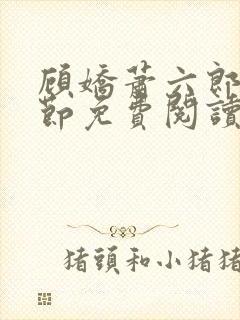 顾嬌萧六郎
節免費閱讀
猪頭和小猪猪